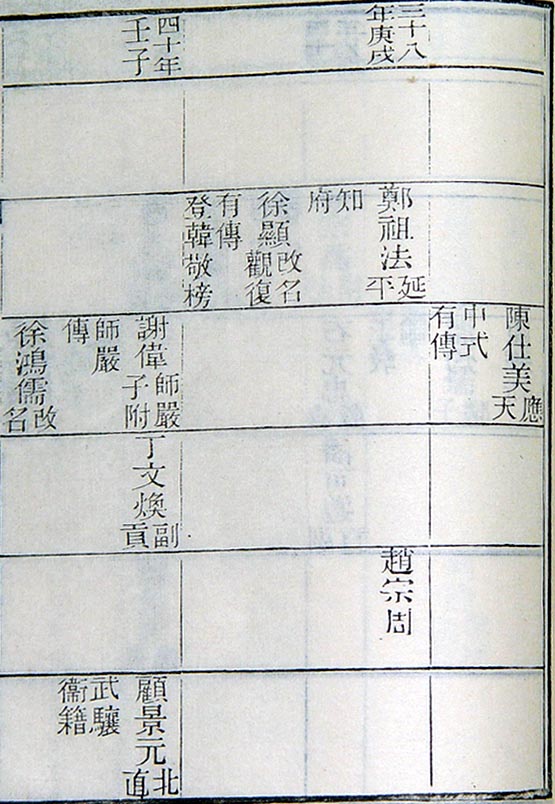 三十八
年庚戌
四十年
壬子
鄭祖法延
平
知
府
徐顯改名
觀復
有傳
登韓敬榜
陳仕美應
天
中式
有傳
謝偉師嚴
子附
師嚴
傳
徐鴻儒改
名
丁文煥副
貢
趙宗周
顧景元北
直
武驤
衞籍